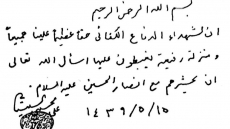 بسم الله الرحمن الرحيم
ان لشهداء الدفاع الكفائي حقا عظيماً علينا جميعاً
ومنزلة رفيعة يغبطون عليها اسأل الله تعالى
ان يحشرهم مع انصار الحسين عليه السلام
١٤٣٩/٥/١٥